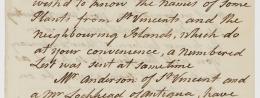 wish'd to know the names of some
Plants from St Vincents and the
neighbouring Islands, which do
at your convenience, a numbered
List was sent at same time
Mr Anderson of St Vincent and
a Mr Lochhead of Antigua, have